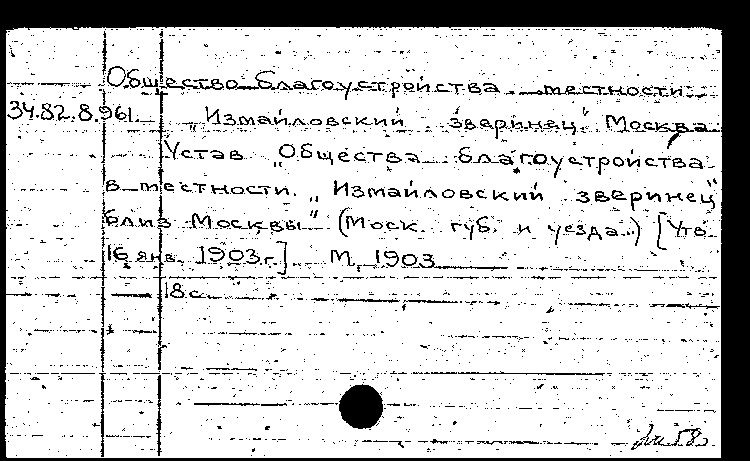 Общество благоустройства местности
34.82.8.961. „Измайловский зверинец" Москва
Устав „Общества благоустройства
в местности „Измайловский зверинец"
близ Москвы" (Моск. губ. и уезда.) [Утв.
16 янв. 1903 г.] М, 1903
18 с.